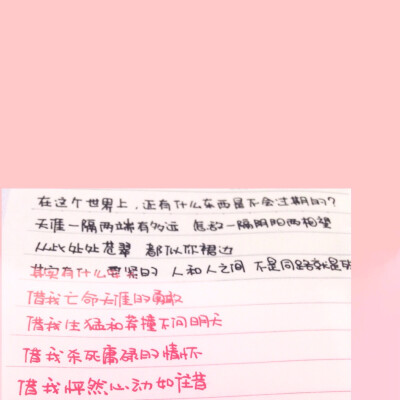 在这个世界上,还有什么东西是不会过期的?
天涯一隔两端有多远 怎敌一隔阴阳两相望
从此处处苍翠 都似你裙边
其实有什么要紧的 人和人之间 不是同路就是
借我亡命天涯的勇敢
借我生猛和莽撞不问明天
借我杀死庸碌的情怀
借我怦然心动如往昔